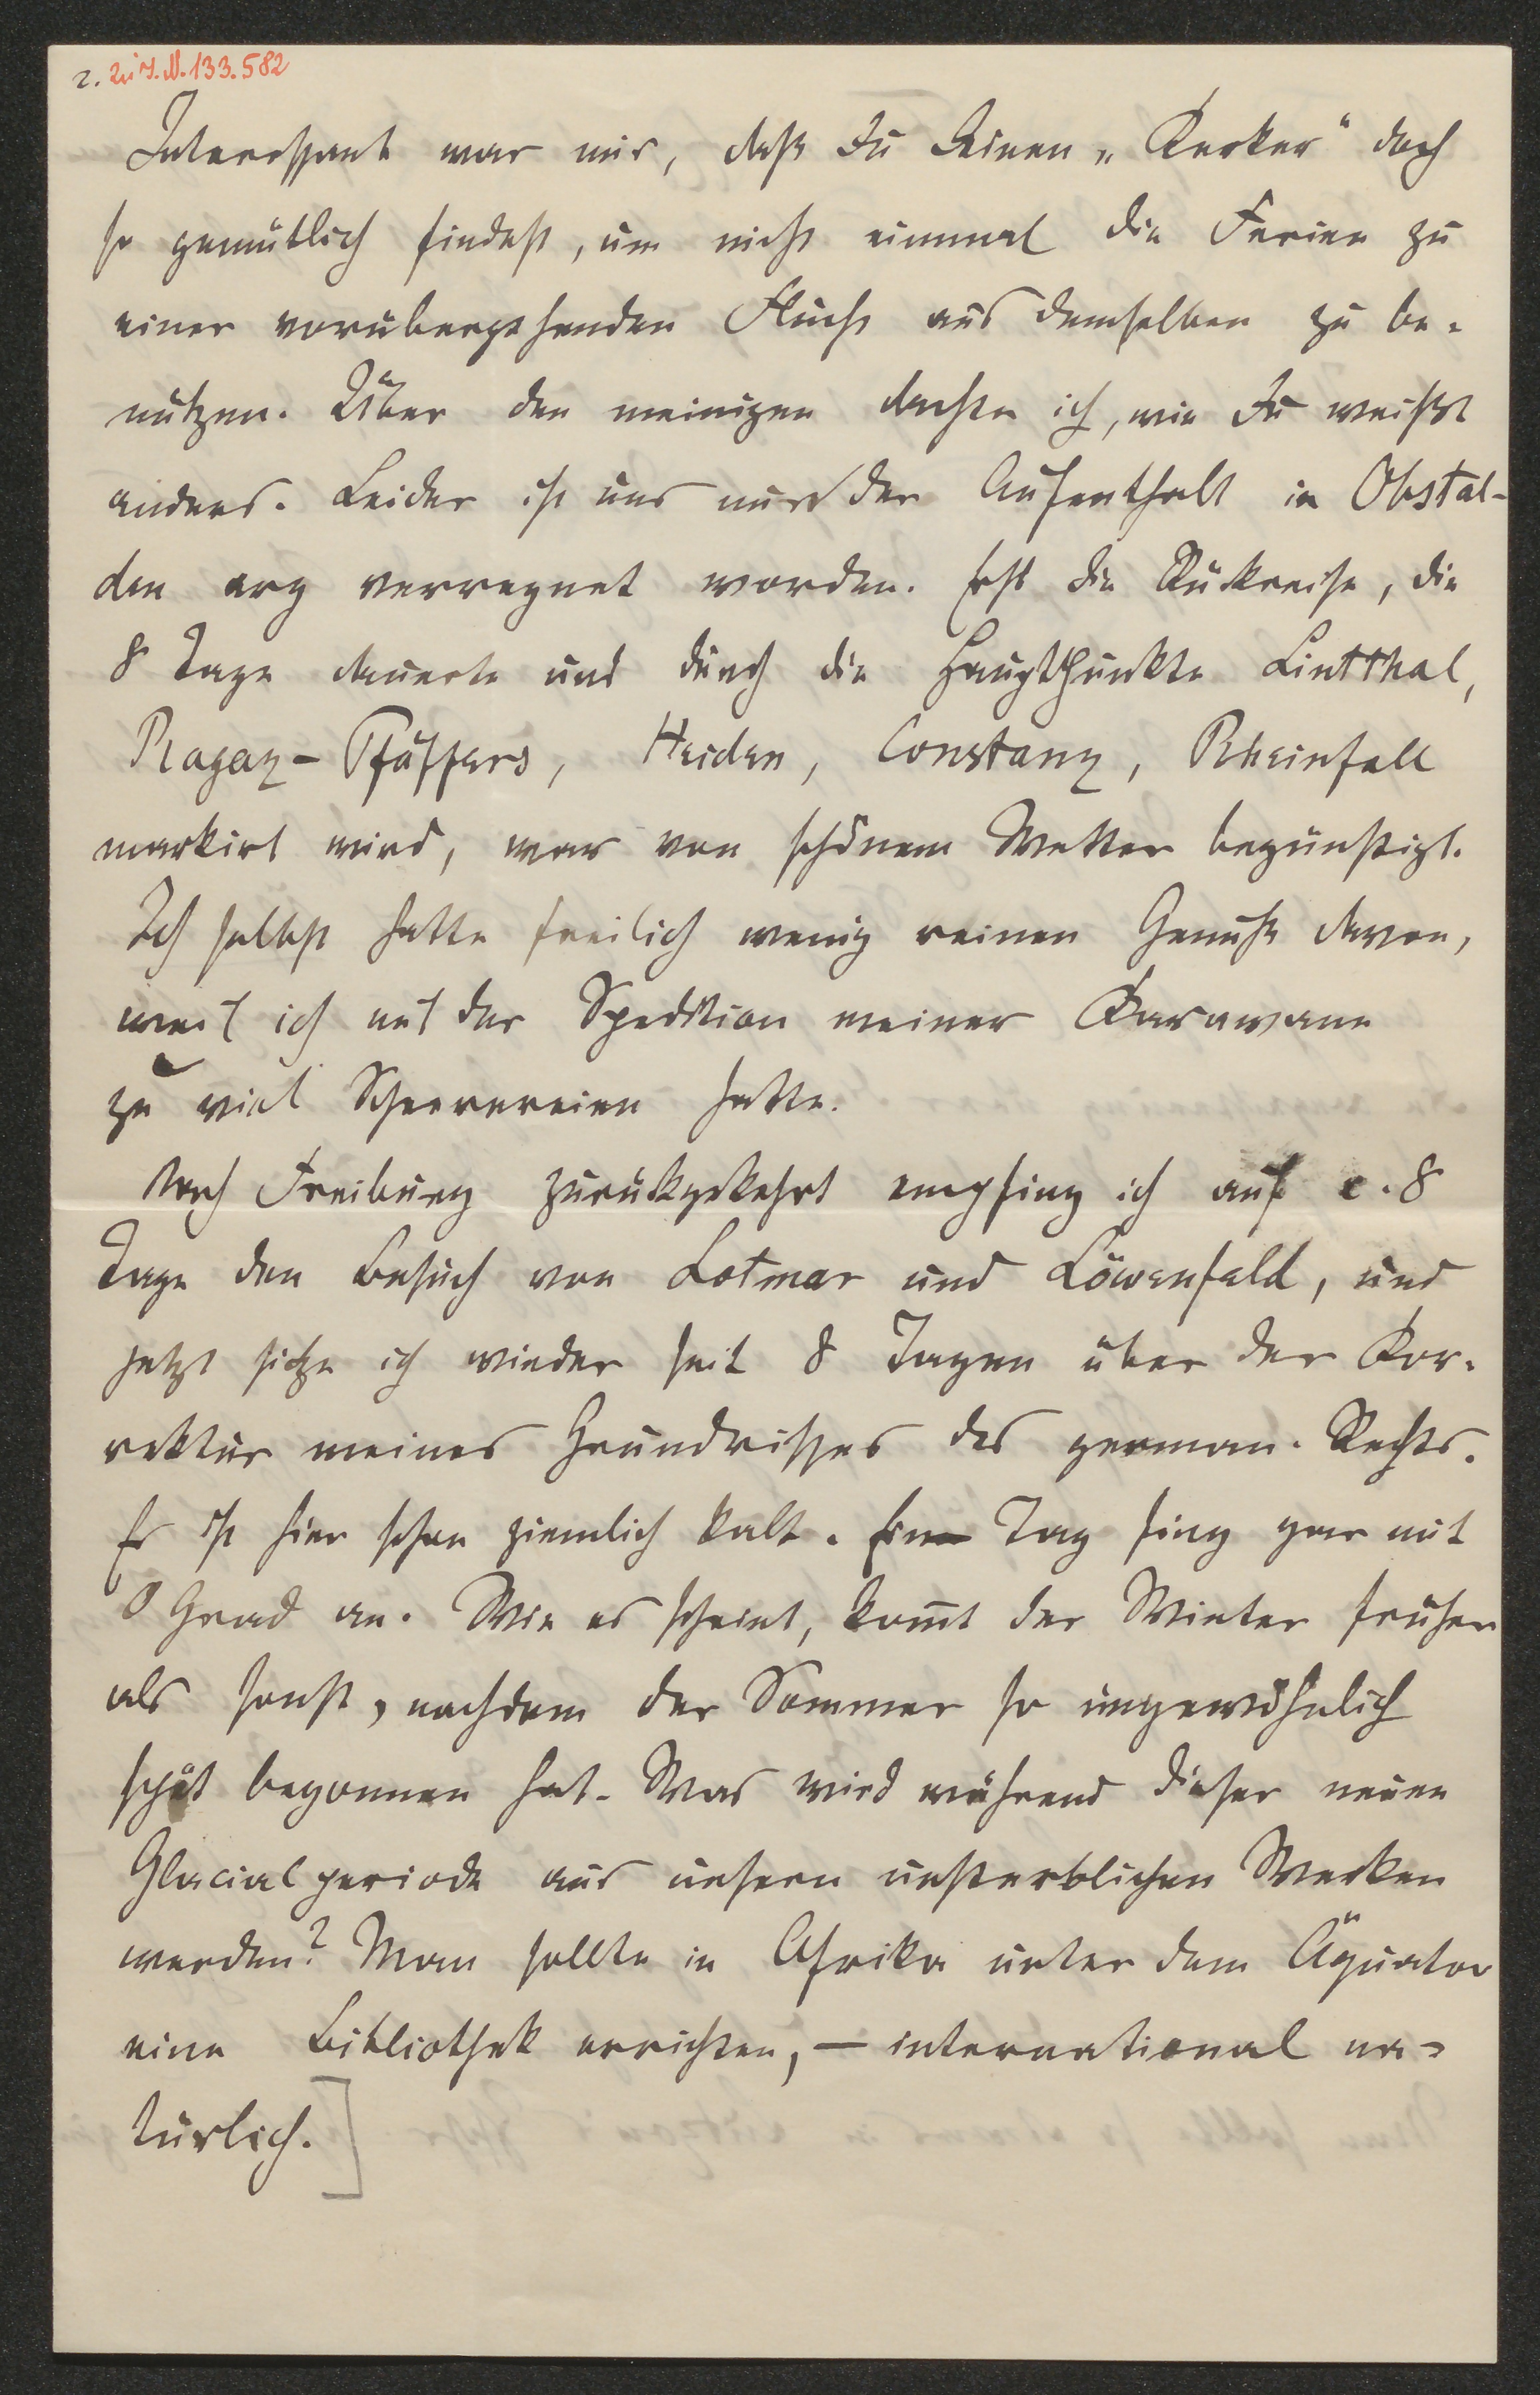 2. Zu I.N. 133.582
Interessant war mir, daß Du Deinen „Kerker“ doch
so gemütlich findest, um nicht einmal die Ferien zu
einer vorübergehenden Flucht aus demselben zu be-
nützen. Über den meinigen dachte ich, wie Du weißt
anders. Leider ist uns nur der Aufenthalt in Obstal-
den arg verregnet worden. Erst die Rückreise, die
8 Tage dauerte und durch die Hauptpunkte Lintthal,
Ragaz-Pfäffers, Heiden, Constanz, Rheinfall
markirt wird, war von schönem Wetter begünstigt.
Ich selbst hatte freilich wenig reinen Genuß davon,
weil ich mit der Spedition meiner Karawane
zu viel Scheerereien hatte.
Nach Freiburg zurückgekehrt empfing ich auf c. 8
Tage den Besuch von Lotmar und Löwenfeld, und
jetzt sitze ich wieder seit 8 Tagen über der Kor-
rektur meines Grundrisses des german. Rechts.
Es ist hier schon ziemlich kalt. Ein Tag fing gar mit
0 Grad an. Wie es scheint, kom̄t der Winter früher
als sonst, nachdem der Sommer so ungewöhnlich
spät begonnen hat. Was wird während dieser neuen
Glacialperiode aus unsern unsterblichen Werken
werden? Man sollte in Afrika unter dem Äquator
eine Bibliothek errichten, – international na-
türlich.]